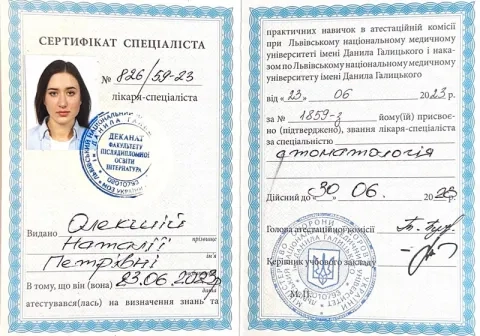 СЕРТИФІКАТ СПЕЦІАЛІСТА
№ 826/59-23
лікаря-спеціаліста
ДЕКАНАТ
ФАКУЛЬТЕТУ
ПІСЛЯДИПЛОМНОЇ
ОСВІТИ
ІНТЕРНАТУРА
Видано Олекший
Наталії
прізвище
Петрівні
В тому, що він (вона) 23.06.2023р
дата
атестувався(лась) на визначення знань та
практичних навичок в атестаційній комісії
при Львівському національному медичному
університеті імені Данила Галицького і нака-
зом по Львівському національному медичному
університету імені Данила Галицького
від «23» 06 2023 р.
за № 1859-з йому(їй) присвоє-
но (підтверджено), звання лікаря-спеціаліста
за спеціальністю
стоматологія
Дійсний до «30» 06. 2028
Голова атестаційної комісії
Керівник учбового закладу
М.П.